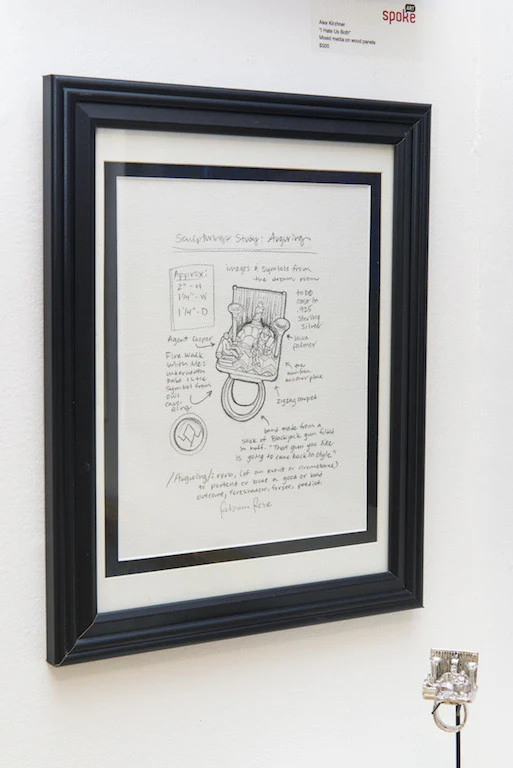 Alex Kirzhner
"I Hate Us Both"
Mixed media on wood panels
$500
spoke
ART
Study: Auguring
images & symbols from
the dream room
Approx:
2" - H
1 3/4" - W
1 1/4" - D
to be
cast in
.925
Sterling
Silver
Agent Cooper
Laura
palmer
Fire Walk
With Me:
Underneath
base is the
symbol from
owl
cave
ring
the
another place
zigzag carpet
band made from a
stick of Blackjack gum folded
in half. "That gum you like
is going to come back in style."
/Auguring/: verb, (of an event or circumstance)
to portend or bode a good or bad
outcome, foreshadow, forsee, predict.